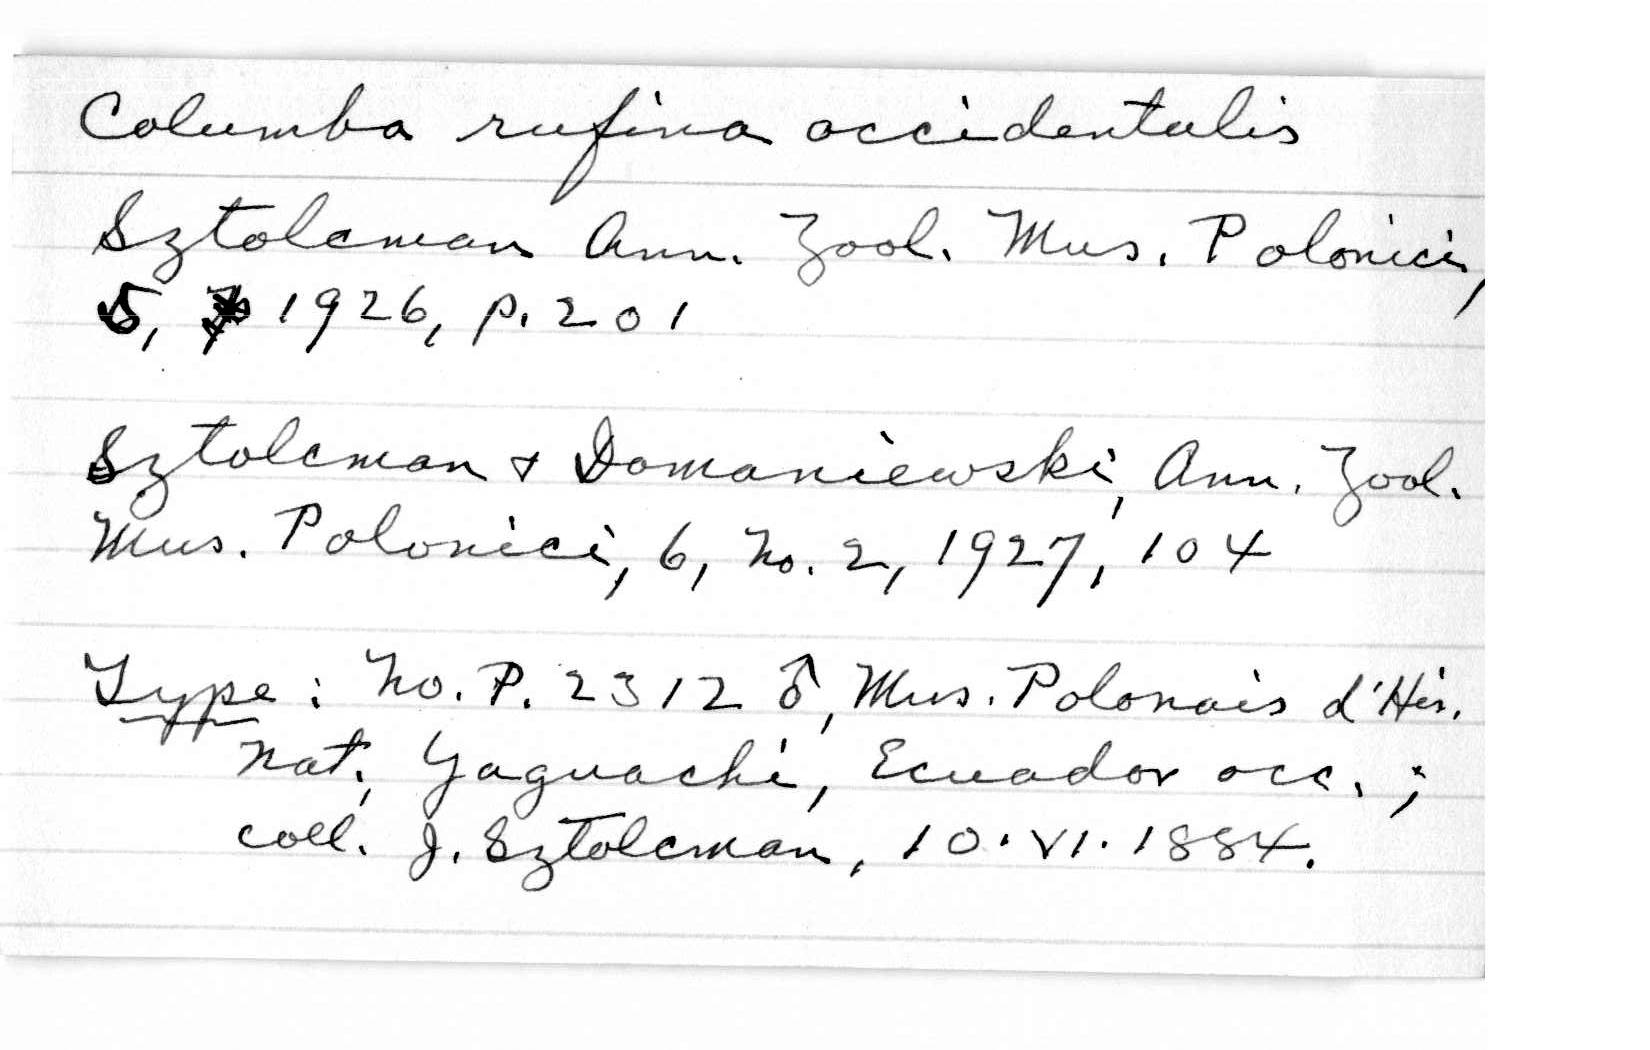 Columba rufina occidentalis
Sztolcman Ann. Zool. Mus. Polonici,
5, 1926, p. 201
Sztolcman & Domaniewski, Ann. Zool.
Mus. Polonici, 6, No. 2, 1927, 104
Type: No. P. 2312 ♂, Mus. Polonais d'His.
Nat., Yaguachi, Ecuador occ.;
coll. J. Sztolcman, 10.VI.1884.